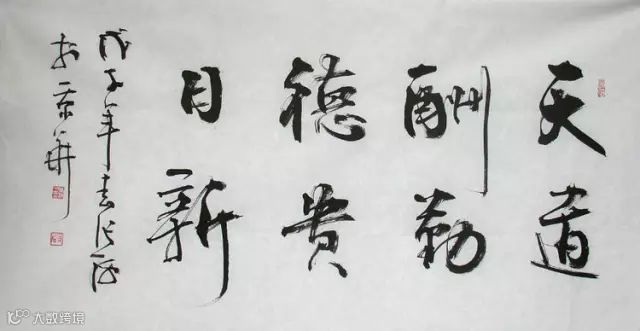 天道
酬勤
德贵
日新
戊子年
於京華
大数跨境